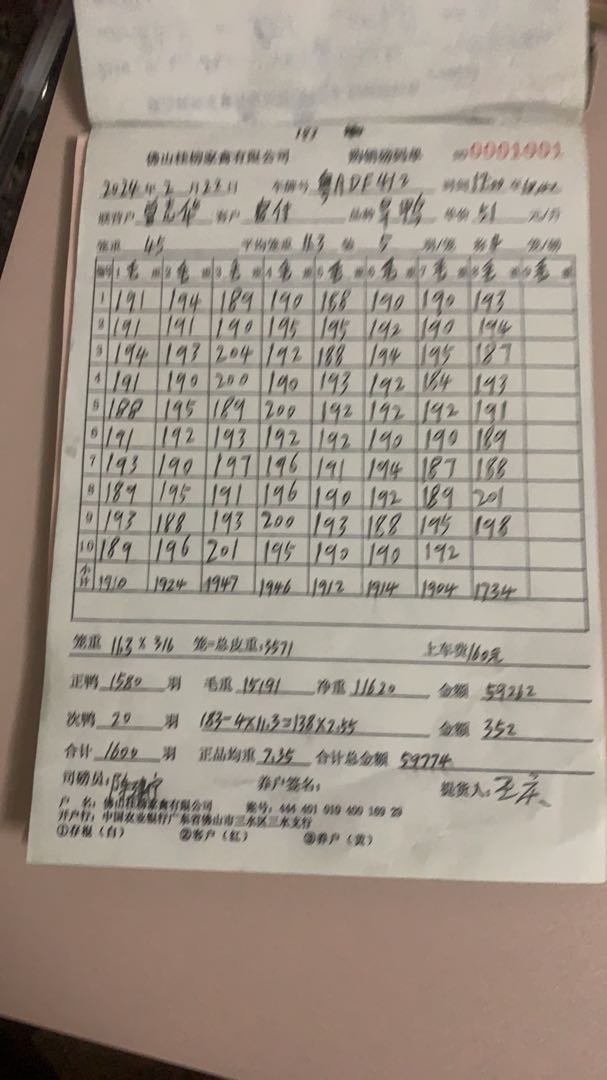 佛山桂柳家禽有限公司 购销磅码单 №0001001
2024年2月23日 车牌号 粤ADF413 时间
客户 品种 旱鸭 单价 5.1 元/斤
笼重 45 平均笼重 11.3 5
编号 1毛 2毛 3毛 4毛 5毛 6毛 7毛 8毛 9毛
1 191 194 189 190 188 190 190 193
2 191 191 190 195 195 192 190 194
3 194 193 204 192 188 194 195 187
4 191 190 200 190 193 192 184 193
5 188 195 189 200 192 192 192 191
6 191 192 193 192 192 190 190 189
7 193 190 197 196 191 194 187 188
8 189 195 191 196 190 192 189 201
9 193 188 193 200 193 188 195 198
10 189 196 201 195 190 190 192
小计 1910 1924 1947 1946 1912 1914 1904 1734
笼重 11.3×316 笼=总皮重:3571 上车费160元
正鸭 1580 羽 毛重 15191 净重 11620 金额 59262
次鸭 20 羽 183-4×11.3=138×2.55 金额 352
合计 1600 羽 正品均重 7.35 合计总金额 59774
司磅员: 养户签名: 提货人:
户 名:佛山桂柳家禽有限公司 账号:444 401 010 400 169 29
开户行:中国农业银行广东省佛山市三水区三水支行
①存根(白) ②客户(红) ③养户(黄)